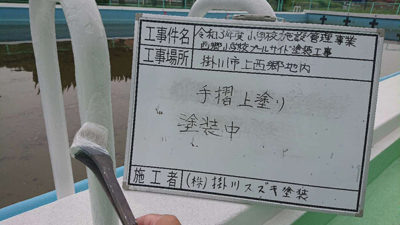 工事件名 令和3年度小学校施設管理事業
西郷小学校プールサイド塗装工事
工事場所 掛川市上西郷地内
手摺上塗り
塗装中
施工者 (株)掛川スズキ塗装